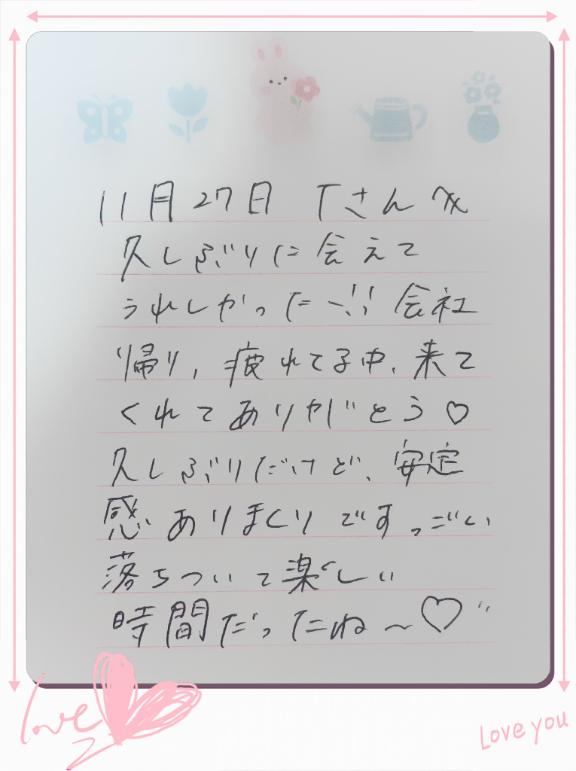 11月27日 Tさんへ
久しぶりに会えて
うれしかったー!! 会社
帰り、疲れてる中、来て
くれてありがとう♡
久しぶりだけど、安定
感ありまくりですっごい
落ちついて楽しい
時間だったね〜♡
love
Love you